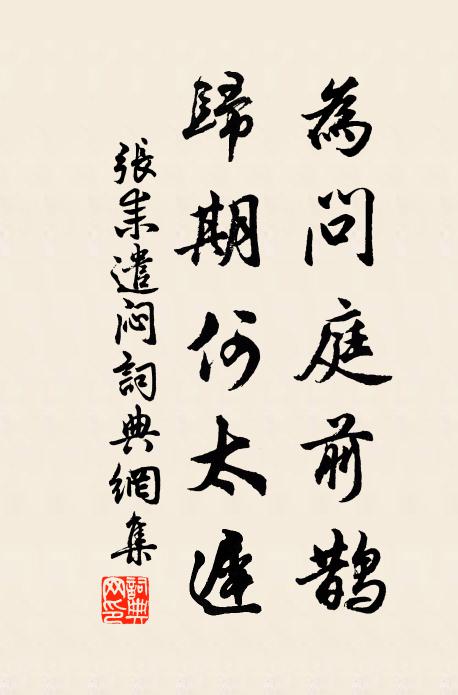 為問庭前鵲
歸期何太遲
張耒遣悶詞典網集
詞典網印